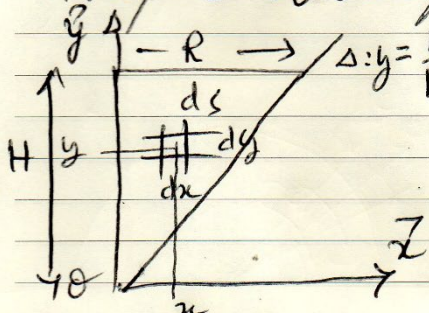 y
R
Δ: y =
ds
H y dy
dx
x
O
x